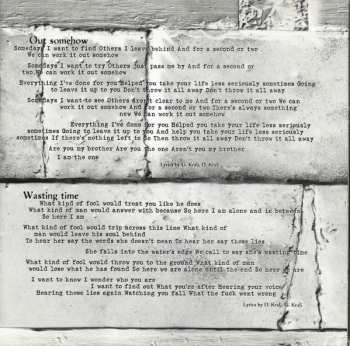 Out somehow
Someday I want to find Others I leave behind And for a second or two
We can work it out somehow
Somedays I want to try Others just pass me by And for a second or
two We can work it out somehow
Everything I've done for you Helped you take your life less seriously sometimes Going
to leave it up to you Don't throw it all away Don't throw it all away
Somedays I want to see Others direct clear to me And for a second or two We can
work it out somehow And for a second or two There's always something
new We can work it out somehow
Everything I've done for you Helped you take your life less seriously
sometimes Going to leave it up to you And help you take your life less seriously
sometimes If there's nothing left to be Then throw it all away Don't throw it all away
Are you my brother Are you the one Aren't you my brother
I am the one
Lyrics by G. Kroll, D. Kroll
Wasting time
What kind of fool would treat you like he does
What kind of man would answer with because So here I am alone and in between
So here I am
What kind of fool would trip across this line What kind of
man would leave his soul behind
To hear her say the words she doesn't mean To hear her say those lies
She falls into the water's edge He call to say she's wasting time
What kind of fool would throw you to the ground What kind of man
would lose what he has found So here we are alone until the end So here we are
I want to know I wonder who you are
I want to find out What you're after Hearing your voice
Hearing those lies again Watching you fall What the fuck went wrong
Lyrics by D. Kroll, G. Kroll